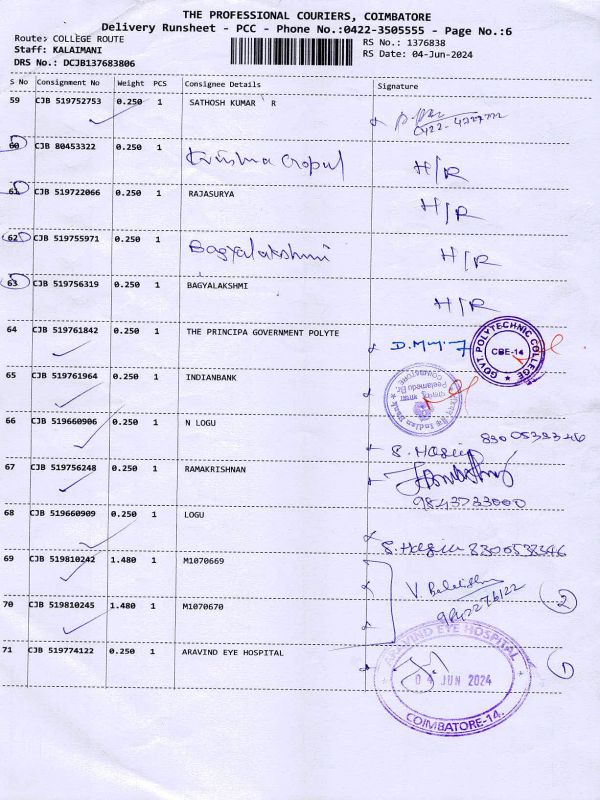 THE PROFESSIONAL COURIERS, COIMBATORE
Delivery Runsheet - PCC - Phone No.:0422-3505555 - Page No.:6
Route: COLLEGE ROUTE
Staff: KALAIMANI
DRS No.: DCJB137683806
RS No.: 1376838
RS Date: 04-Jun-2024
S No Consignment No Weight PCS Consignee Details Signature
59 CJB 519752753 0.250 1 SATHOSH KUMAR R
60 CJB 80453322 0.250 1 Krishna Gopal H/R
61 CJB 519722066 0.250 1 RAJASURYA H/R
62 CJB 519755971 0.250 1 Bagyalakshmi H/R
63 CJB 519756319 0.250 1 BAGYALAKSHMI H/R
64 CJB 519761842 0.250 1 THE PRINCIPA GOVERNMENT POLYTE
GOVT POLYTECHNIC COLLEGE
CBE-14
65 CJB 519761964 0.250 1 INDIANBANK
Indian Bank
Peelamedu Br.
Coimbatore
66 CJB 519660906 0.250 1 N LOGU
67 CJB 519756248 0.250 1 RAMAKRISHNAN
9843733000
68 CJB 519660909 0.250 1 LOGU
8300538346
69 CJB 519810242 1.480 1 M1070669
70 CJB 519810245 1.480 1 M1070670
2
71 CJB 519774122 0.250 1 ARAVIND EYE HOSPITAL
1
ARAVIND EYE HOSPITAL
04 JUN 2024
COIMBATORE-14.